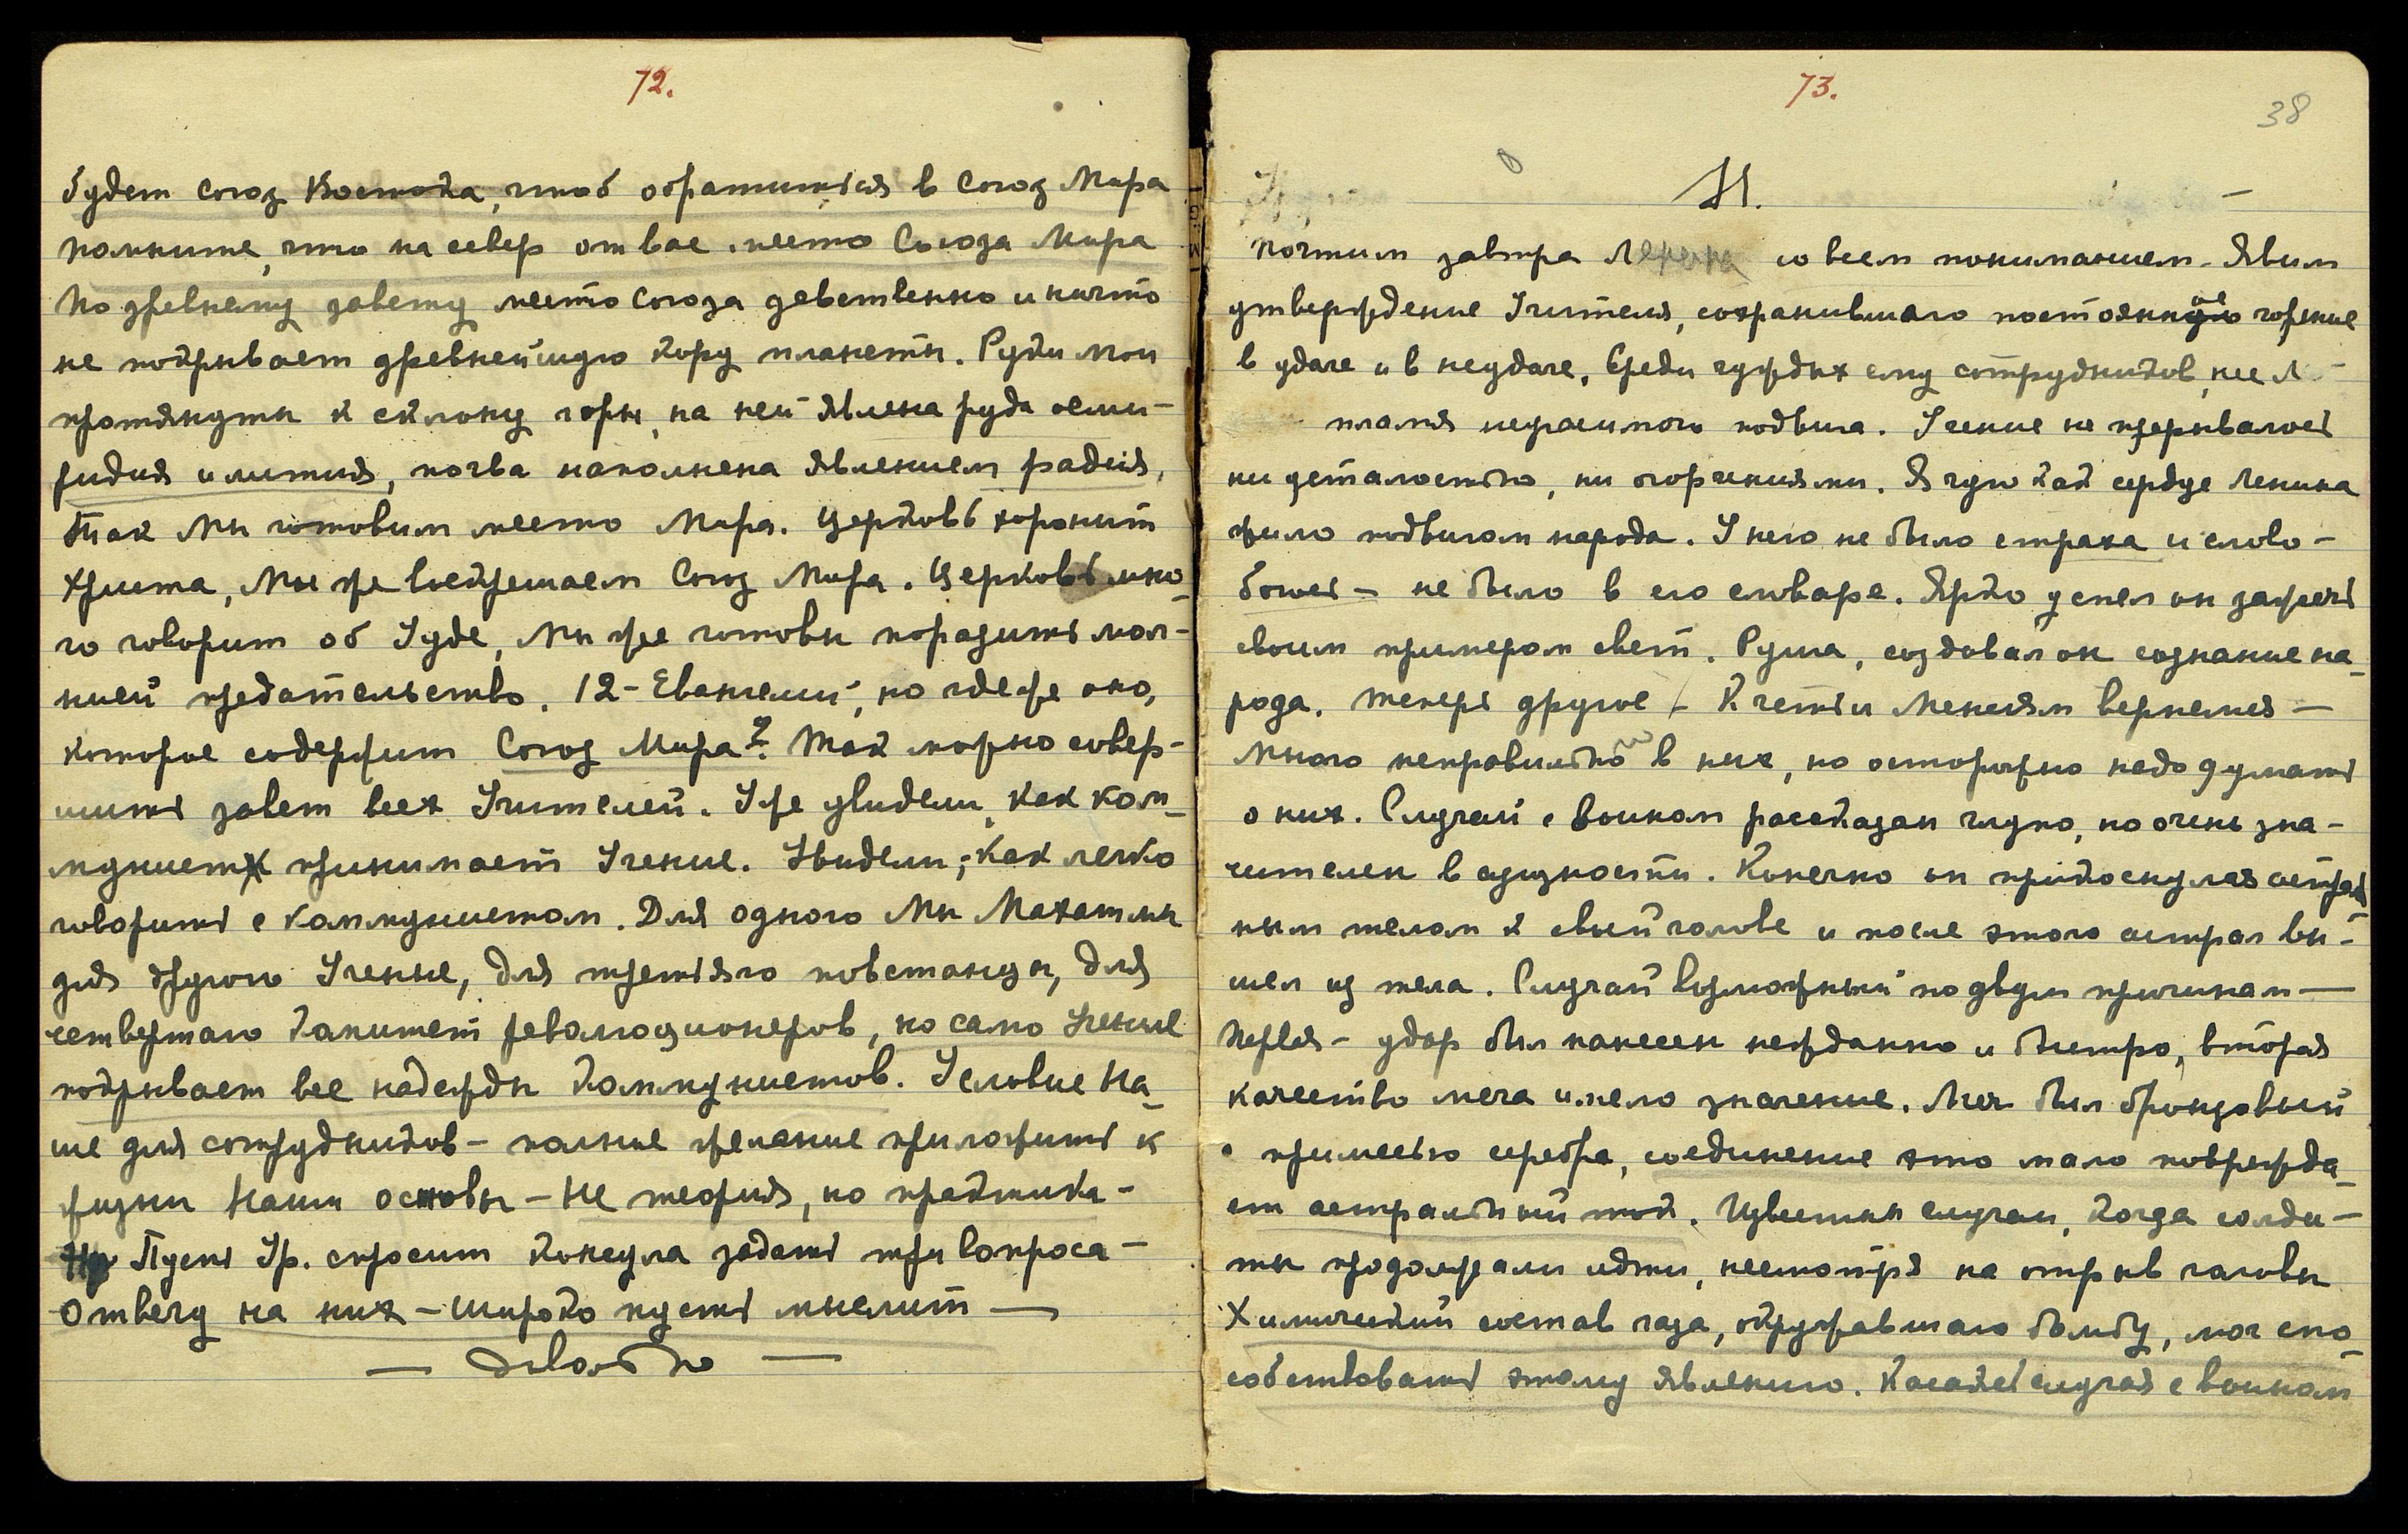 72.
будет союз Востока, чтоб обратиться в Союз Мира
помните, что на север от вас место Союза Мира
По древнему завету место Союза девственно и ничто
не покрывает древнейшую кору планеты. Руки мои
протянуты к склону горы, на ней явлена руда осми-
ридия и лития, почва наполнена явлением радия,
Так Мы готовим место Мира. Церковь хоронит
Христа, Мы же воскрешаем Союз Мира. Церковь мно-
го говорит об Иуде, Мы же готовы поразить мол-
нией предательство. 12 - Евангелий, но где же оно,
которое содержит Союз Мира? Так можно совер-
шить завет всех Учителей. Уже увидели, как ком-
мунист принимает Учение. Увидели, как легко
говорить с коммунистом. Для одного Мы Махатмы
для другого Учение, для третьяго повстанцы, для
четвертаго комитет революционеров, но само Учение
покрывает все надежды коммунистов. Условие На-
ше для сотрудников - полное желание приложить к
жизни Наши основы - не теория, но практика -
Пусть Ур. спросит Консула задать три вопроса -
Отвечу на них - Широко пусть мыслит —
— довольно —
73.
38
11.
почтим завтра Ленина со всем пониманием. Явим
утверждение Учителя, сохранившаго постоянное горение
в удаче и в неудаче. Среди чуждых ему сотрудников, нес Л
пламя неугасимого подвига. Учение не прерывалось
ни усталостью, ни огорчениями. Я чую как сердце Ленина
жило подвигом народа. У него не было страха и слово -
боюсь - не было в его словаре. Ярко успел он зажечь
своим примером свет. Руша, создавал он сознание на-
рода. Теперь другое - К чети Менеям вернемся —
Много неправильно в них, но осторожно надо думать
о них. Случай с воином рассказан глупо, но очень зна-
чителен в сущности. Конечно он прикоснулся астраль
ным телом к своей голове и после этого астрал вы-
шел из тела. Случай возможный по двум причинам —
Первая - удар был нанесен нежданно и быстро, вторая
качество меча имело значение. Меч был бронзовый
с примесью серебра, соединение это мало поврежда-
ет астральный ток. Известны случаи, когда солда-
ты продолжали идти, несмотря на отрыв головы
Химический состав газа, окружавшаго бомбу, мог спо-
собствовать этому явлению. Касаясь случая с воином